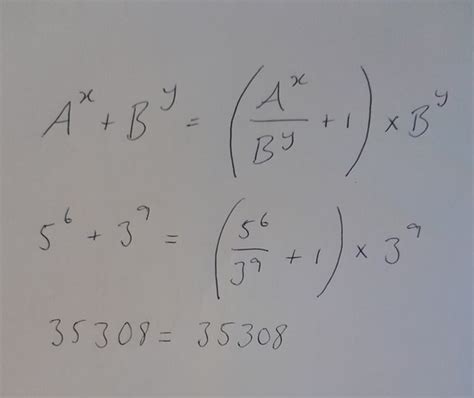 A^x + B^y = (A^x/B^y + 1) × B^y
5^6 + 3^9 = (5^6/3^9 + 1) × 3^9
35308 = 35308